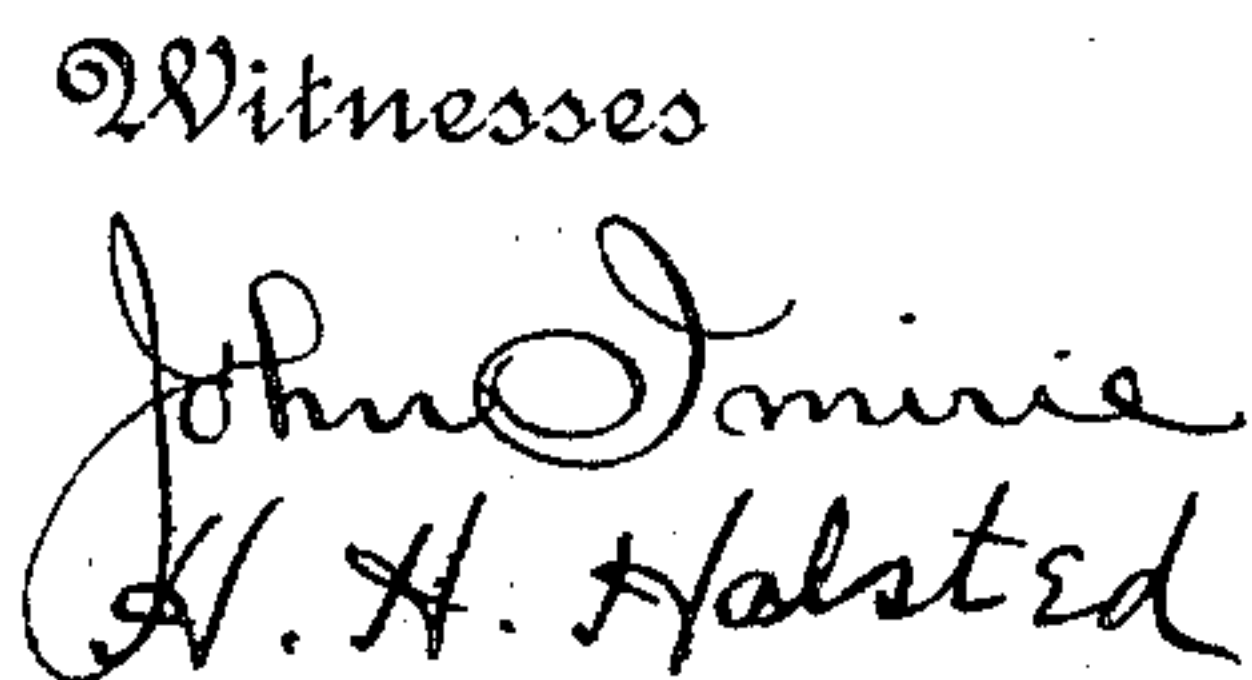 Witnesses
John Imirie
W. H. Halsted